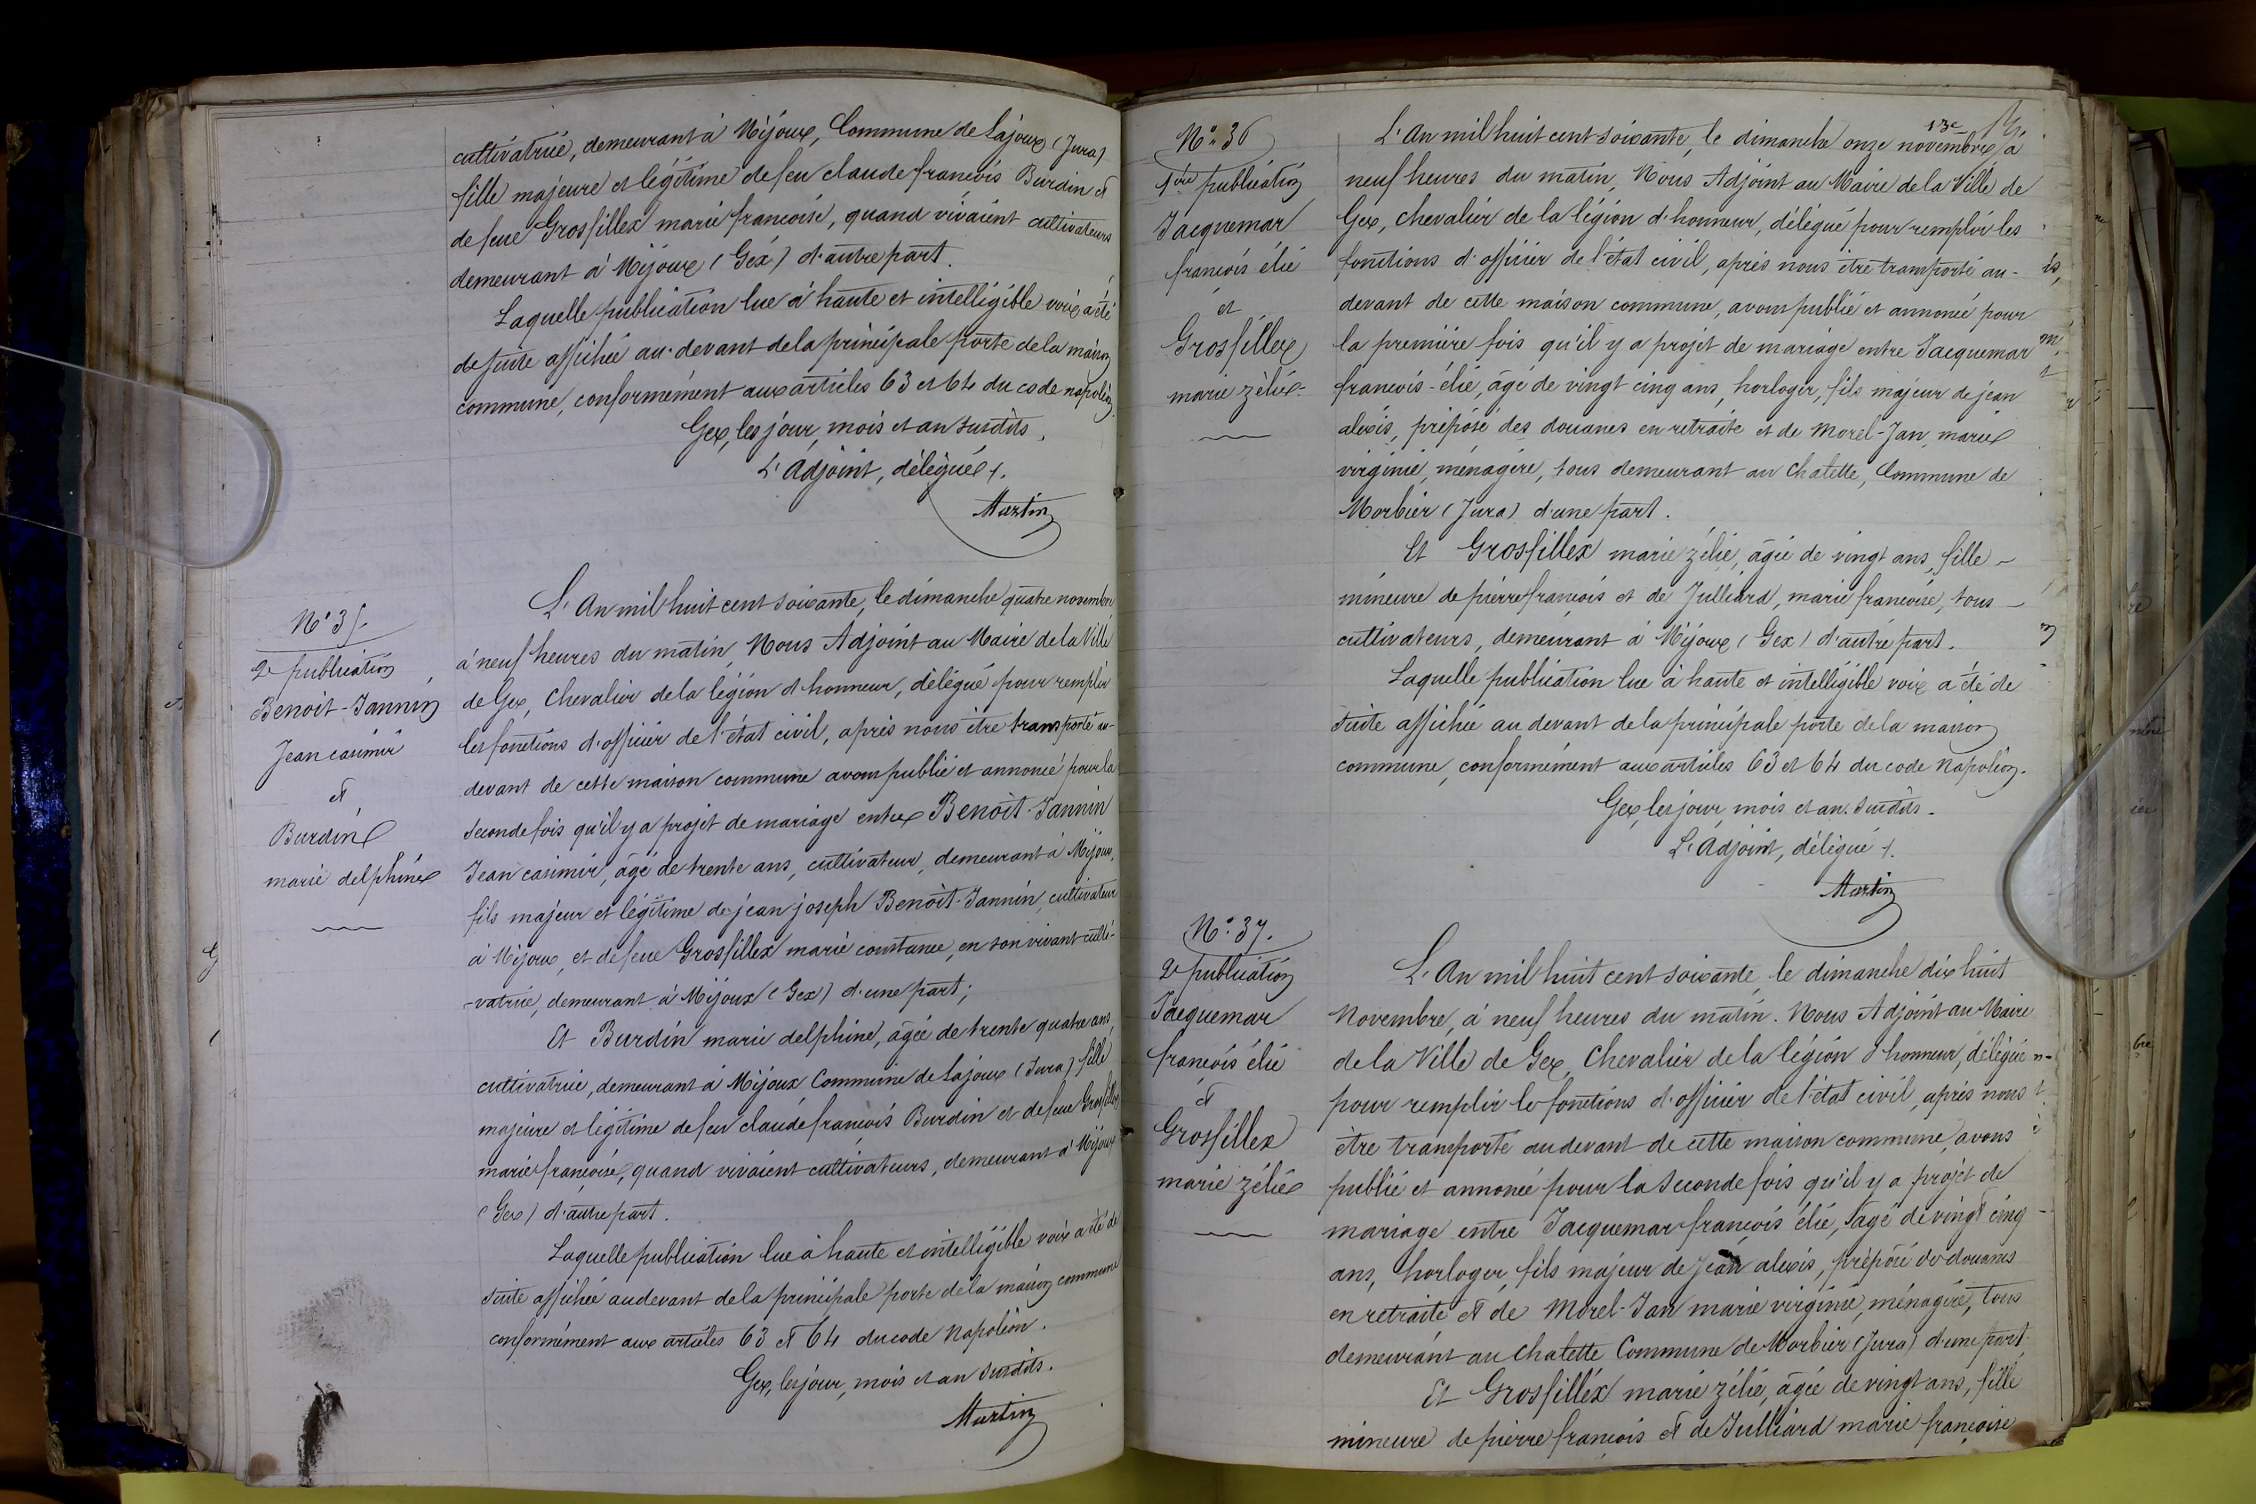 cultivatrice, demeurant à Mijoux, Commune de Lajoux (Jura)
fille majeure et légitime de feu claude françois Burdin et
de feue Grosfillex marie françoise, quand vivaient cultivateurs
demeurant à Mijoux (Gex) d'autre part.
Laquelle publication lue à haute et intelligible voix a été
de suite affichée au-devant de la principale porte de la maison
commune, conformément aux articles 63 et 64 du code napoléon.
Gex, les jour, mois et an susdits.
L'Adjoint, délégué.
Martin
N° 35.
2e publication
Benoit-Jannin
Jean casimir
et
Burdin
marie delphine
L'An mil huit cent soixante, le dimanche quatre novembre
à neuf heures du matin, Nous Adjoint au Maire de la Ville
de Gex, Chevalier de la légion d'honneur, délégué pour remplir
les fonctions d'officier de l'état civil, après nous être transporté au-
devant de cette maison commune avons publié et annoncé pour la
seconde fois qu'il y a projet de mariage entre Benoit-Jannin
Jean casimir, âgé de trente ans, cultivateur, demeurant à Mijoux,
fils majeur et légitime de jean joseph Benoit-Jannin, cultivateur
à Mijoux, et de feue Grosfillex marie constance, en son vivant culti-
-vatrice, demeurant à Mijoux (Gex) d'une part;
Et Burdin marie delphine, âgée de trente quatre ans,
cultivatrice, demeurant à Mijoux Commune de Lajoux (Jura) fille
majeure et légitime de feu claude françois Burdin et de feue Grosfillex
marie françoise, quand vivaient cultivateurs, demeurant à Mijoux
(Gex) d'autre part.
Laquelle publication lue à haute et intelligible voix a été de
suite affichée au devant de la principale porte de la maison commune
conformément aux articles 63 et 64 du code Napoléon.
Gex, les jour, mois et an susdits.
Martin
13e
N° 36
1ère publication
Jacquemar
françois élie
et
Grosfillex
marie zélie
L'An mil huit cent soixante, le dimanche onze novembre, à
neuf heures du matin, Nous Adjoint au Maire de la Ville de
Gex, Chevalier de la légion d'honneur, délégué pour remplir les
fonctions d'officier de l'état civil, après nous être transporté au-
devant de cette maison commune, avons publié et annoncé pour
la première fois qu'il y a projet de mariage entre Jacquemar
françois-élie, âgé de vingt cinq ans, horloger, fils majeur de jean
alexis, préposé des douanes en retraite et de Morel-Jan, marie
virginie, ménagère, tous demeurant au Chatette, Commune de
Morbier (Jura) d'une part.
Et Grosfillex marie zélie, âgée de vingt ans, fille
mineure de pierre françois et de Julliard, marie françoise, tous
cultivateurs, demeurant à Mijoux (Gex) d'autre part.
Laquelle publication lue à haute et intelligible voix a été de
suite affichée au devant de la principale porte de la maison
commune, conformément aux articles 63 et 64 du code Napoléon.
Gex, les jour, mois et an susdits.
L'Adjoint, délégué.
Martin
N° 37.
2e publication
Jacquemar
françois élie
et
Grosfillex
marie zélie
L'An mil huit cent soixante, le dimanche dix huit
Novembre, à neuf heures du matin. Nous Adjoint au Maire
de la Ville de Gex, Chevalier de la légion d'honneur, délégué
pour remplir les fonctions d'officier de l'état civil, après nous
être transporté au devant de cette maison commune, avons
publié et annoncé pour la seconde fois qu'il y a projet de
mariage entre Jacquemar françois élie, âgé de vingt cinq
ans, horloger, fils majeur de Jean alexis, préposé de douanes
en retraite et de Morel-Jan marie virginie, ménagère, tous
demeurant au Chatette Commune de Morbier (Jura) d'une part.
Et Grosfillex marie zélie, âgée de vingt ans, fille
mineure de pierre françois et de Julliard marie françoise